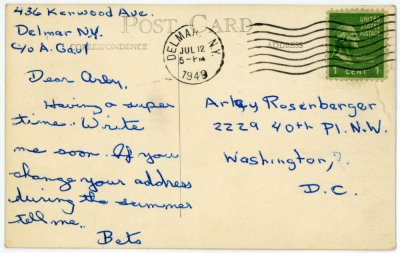 436 Kenwood Ave.
Delmar N.Y.
c/o A. Gail
POST CARD
CORRESPONDENCE
ADDRESS
DELMAR, N.Y.
JUL 12
5-PM
1949
UNITED
STATES
POSTAGE
1 CENT 1
Dear Arky,
Having a super
time. Write
me soon. If you
change your address
during the summer
tell me.
Bets
Arky Rosenberger
2229 40th Pl. N.W.
Washington,
D.C.